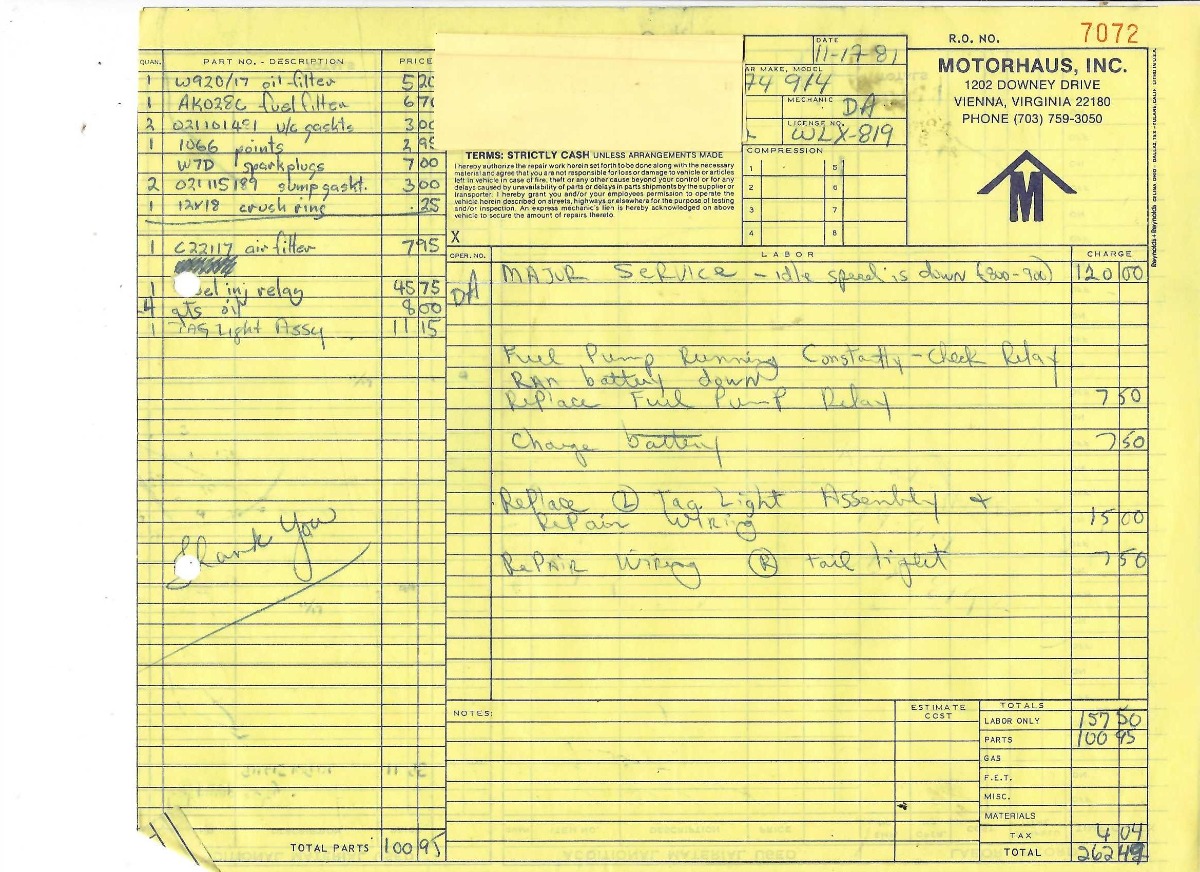 R.O. NO. 7072
MOTORHAUS, INC.
1202 DOWNEY DRIVE
VIENNA, VIRGINIA 22180
PHONE (703) 759-3050
M
DATE
11-17-81
AR MAKE, MODEL
74 914
MECHANIC DA
LICENSE NO.
WLX-819
COMPRESSION
1 5
2 6
3 7
4 8
QUAN. PART NO. - DESCRIPTION PRICE
1 W920/17 oil filter 5 20
1 AK028C fuel filter 6 70
2 021101481 v/c gaskts 3 00
1 1066 points 2 95
W7D sparkplugs 7 00
2 021115189 sump gaskt. 3 00
1 12x18 crush ring .25
1 C22117 air filter 7 95
1 fuel inj relay 45 75
4 qts oil 8 00
1 TAG Light Assy 11 15
Thank You
TOTAL PARTS 100 95
TERMS: STRICTLY CASH UNLESS ARRANGEMENTS MADE
I hereby authorize the repair work herein set forth to be done along with the necessary
material and agree that you are not responsible for loss or damage to vehicle or articles
left in vehicle in case of fire, theft or any other cause beyond your control or for any
delays caused by unavailability of parts or delays in parts shipments by the supplier or
transporter. I hereby grant you and/or your employees permission to operate the
vehicle herein described on streets, highways or elsewhere for the purpose of testing
and/or inspection. An express mechanic's lien is hereby acknowledged on above
vehicle to secure the amount of repairs thereto.
X
OPER. NO. LABOR CHARGE
DA MAJOR SERVICE - idle speed is down (800-900) 120 00
Fuel Pump Running Constantly - Check Relay
RAN battery down
Replace Fuel Pump Relay 7 50
Charge battery 7 50
Replace (L) Tag Light Assembly +
Repair Wiring 15 00
RePAIR Wiring (R) tail light 7 50
NOTES:
ESTIMATE
COST
TOTALS
LABOR ONLY 157 50
PARTS 100 95
GAS
F.E.T.
MISC.
MATERIALS
TAX 4 04
TOTAL 262 49